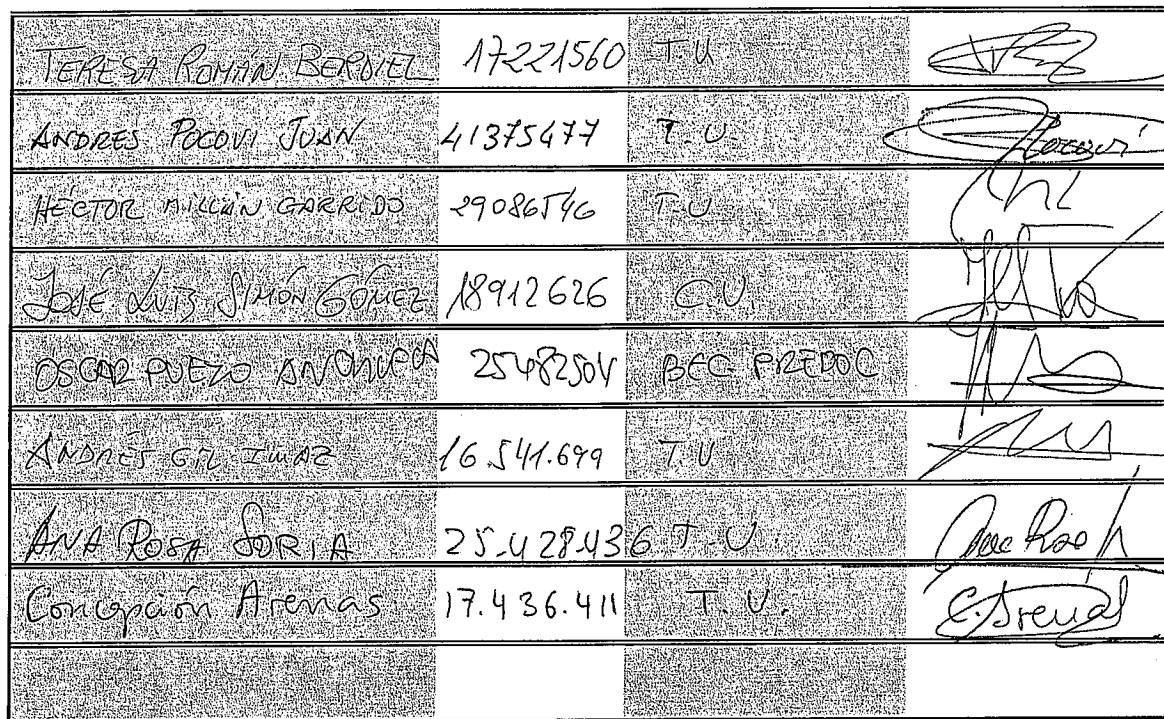 TERESA ROMÁN BERDIEL 17221560 T.U.
ANDRES POCOVI JUAN 41375477 T.U.
HÉCTOR MILLÁN GARRIDO 29086546 T.U.
JOSÉ LUIS SIMÓN GÓMEZ 18912626 C.U.
OSCAR PUEYO 25482504 BEC PREDOC
ANDRÉS GIL IMAZ 16.541.699 T.U.
ANA ROSA SORIA 25.428.436 T.U. Ana Rosa
Concepción Arenas 17.436.411 T.U. C. Arenas